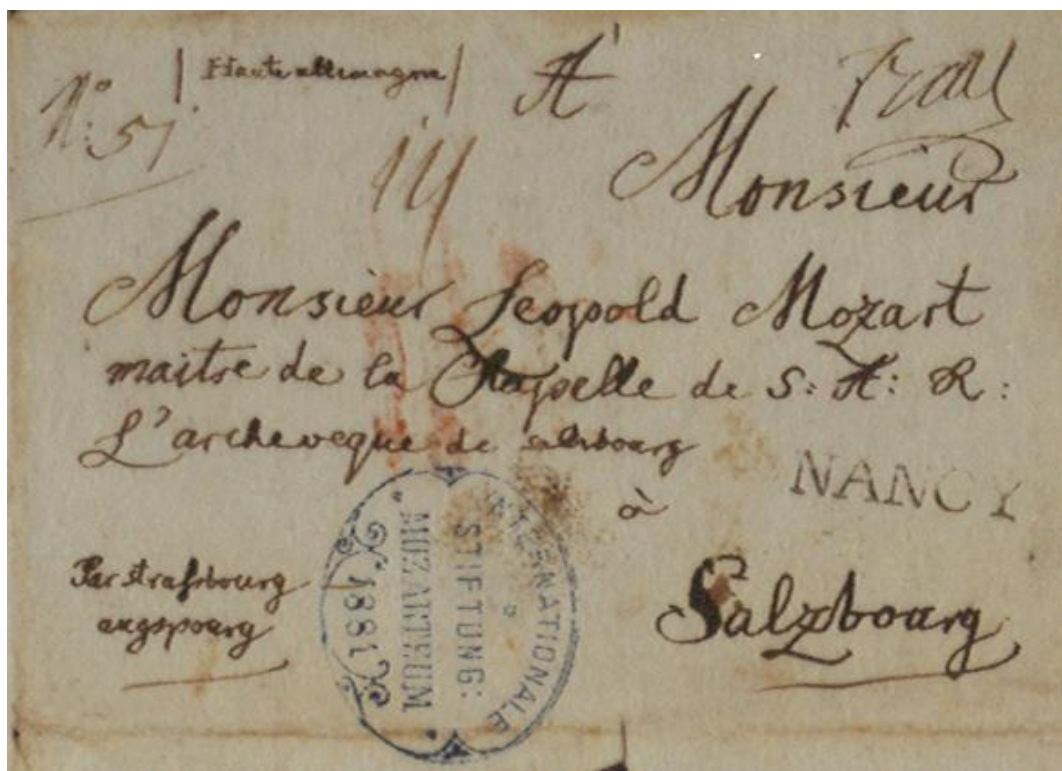 N:º 51
| Haute allemagne |
A
Monsieur
Monsieur Leopold Mozart
maitre de la Chapelle de S: A: R:
L'archeveque de salzbourg
à
NANCY
Par strasbourg
augspourg
Salzbourg
INTERNATIONALE
STIFTUNG:
„MOZARTEUM"
1881